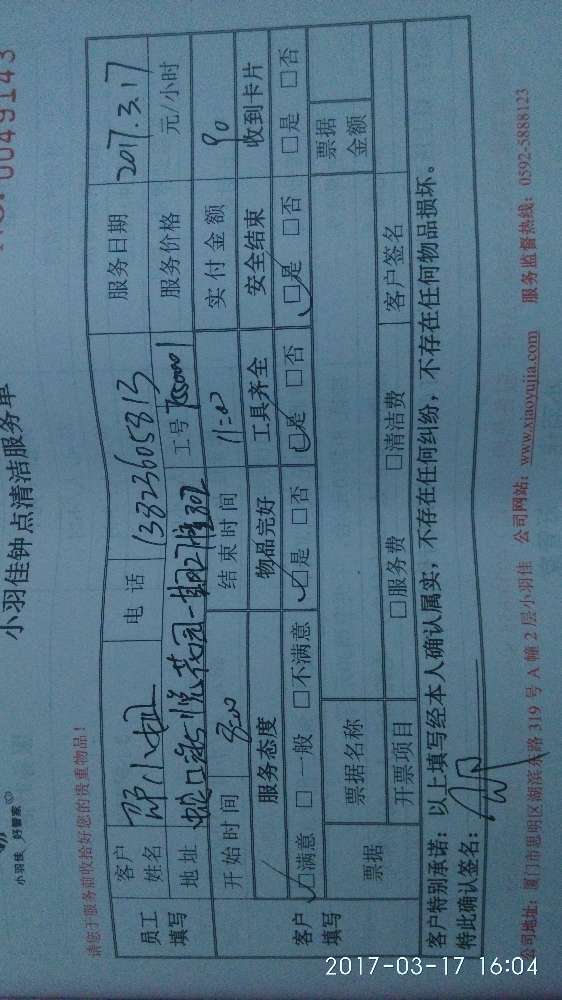 小羽佳 好管家
小羽佳钟点清洁服务单
0049143
请您于服务前收拾好您的贵重物品！
员工填写 客户姓名 电话 13823605813 服务日期 2017.3.17
地址 工号 服务价格 元/小时
开始时间 结束时间 11:00 实付金额 90
客户填写 服务态度 物品完好 工具齐全 安全结束 收到卡片
□满意 □一般 □不满意 □是 □否 □是 □否 □是 □否 □是 □否
票据 票据名称 票据金额
开票项目 □服务费 □清洁费 客户签名
客户特别承诺：以上填写经本人确认属实，不存在任何纠纷，不存在任何物品损坏。
特此确认签名：
公司地址：厦门市思明区湖滨东路 319 号 A 幢 2 层小羽佳 公司网站：www.xiaoyujia.com 服务监督热线：0592-5888123
2017-03-17 16:04